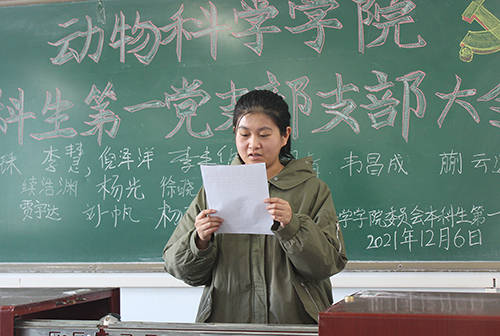 动物科学学院
科生第一党支部支部大
李慧 倪泽洋 韦昌成
续浩渊 杨光 徐
贾宇达 刘帆 杨
学学院委员会本科生第一
2021年12月6日